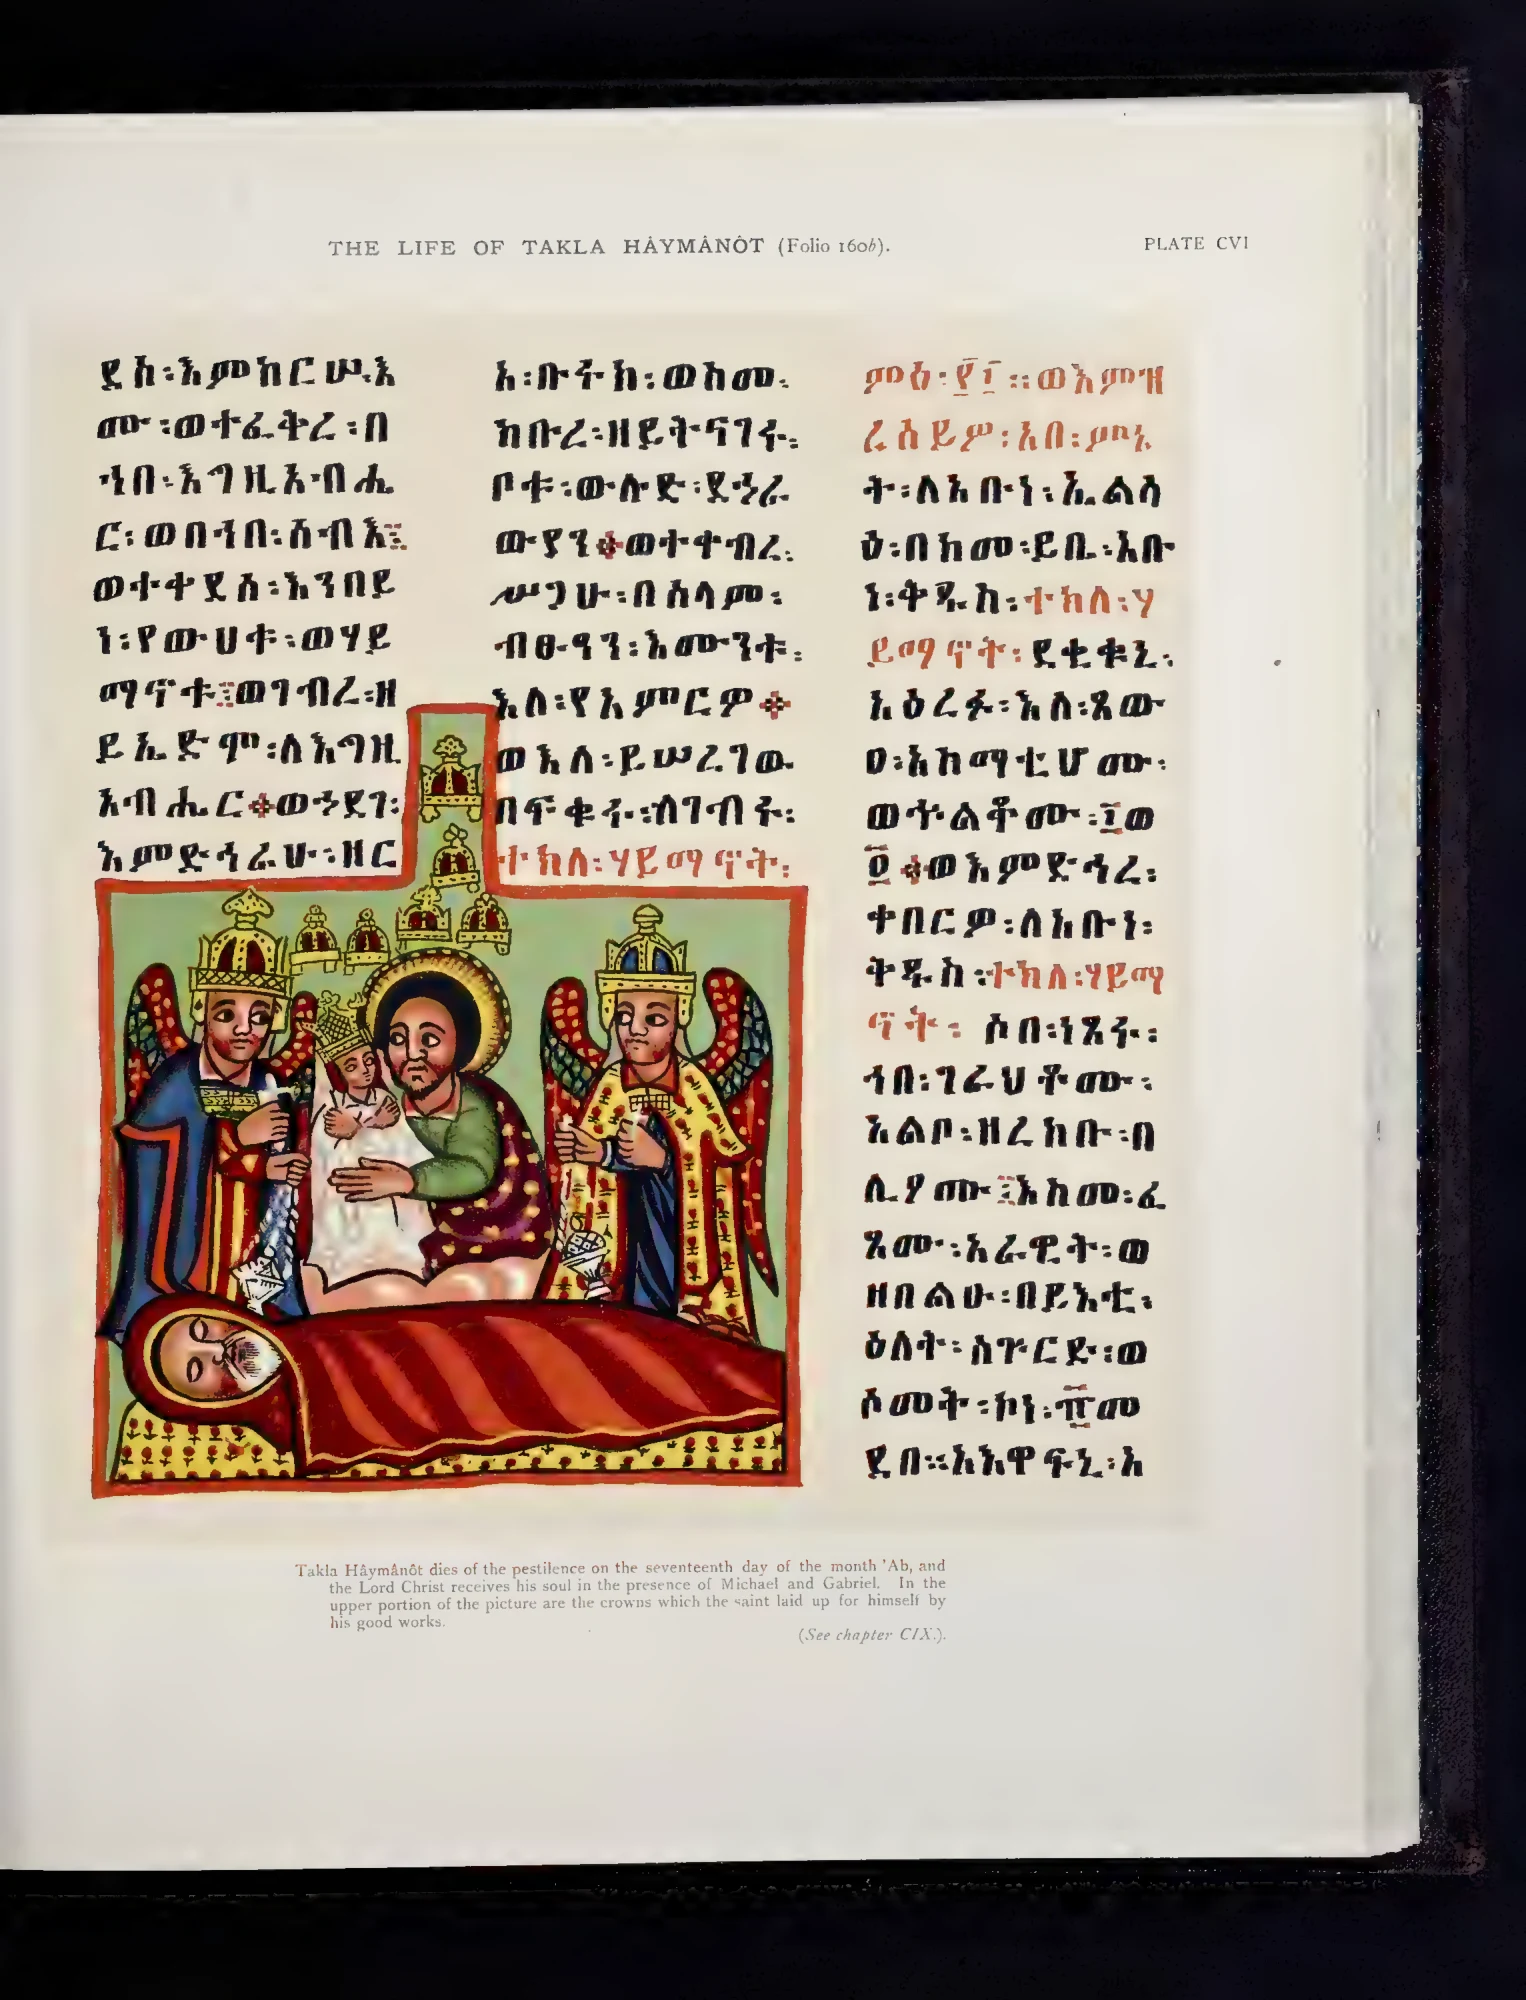 THE LIFE OF TAKLA HÂYMÂNÔT (Folio 160b).
PLATE CVI
ደሰ፡እምከርሠ፡እ
ሙ፡ወተፈቅረ፡በ
ኀበ፡እግዚአብሔ
ር፡ወበኀበ፡ሰብእ፤
ወተቀደሰ፡እንበይ
ነ፡የውሀቱ፡ወሃይ
ማኖቱ፤ወገብረ፡ዘ
ይኤድሞ፡ለእግዚ
አብሔር፨ወኀደገ፡
እምድኅሬሁ፡ዘር
አ፡ቡሩከ፡ወከመ፡
ክቡረ፡ዘይትናገሩ፡
ቦቱ፡ውሉድ፡ደኃራ
ውያን፨ወተቀብረ፡
ሥጋሁ፡በሰላም፡
ብፁዓን፡እሙንቱ፡
እለ፡የአምርዎ፨
ወእለ፡ይሠረገዉ
በፍቁሩ፡ሰገብሩ፡
ተክለ፡ሃይማኖት፡
ምዕ፡፲፤፡፡ወእምዝ
ረሰይዎ፡አበ፡ምኔ
ት፡ለአቡነ፡ኤልሳ
ዕ፡በከመ፡ይቤ፡አቡ
ነ፡ቅዱስ፡ተክለ፡ሃ
ይማኖት፡ደቂቁኒ፡
አዕረፉ፡እለ፡ጸው
ዐ፡አስማቲሆሙ፡
ወኍልቆሙ፡፲ወ
፩፨ወእምድኅረ፡
ቀበርዎ፡ለአቡነ፡
ቅዱስ፡ተክለ፡ሃይማ
ኖት፡ሶበ፡ነጸሩ፡
ኀበ፡ገራህቶሙ፡
አልቦ፡ዘረከቡ፡በ
ሊሃሙ፤እስመ፡ፈ
ጸሙ፡አራዊት፡ወ
ዘበልሁ፡በይእቲ፡
ዕለት፡ስጕርድ፡ወ
ሶመት፡ኮነ፡፹መ
ደበ፡፡አእዋፍኒ፡አ
Takla Hâymânôt dies of the pestilence on the seventeenth day of the month 'Ab, and
the Lord Christ receives his soul in the presence of Michael and Gabriel. In the
upper portion of the picture are the crowns which the saint laid up for himself by
his good works.
(See chapter CIX.).